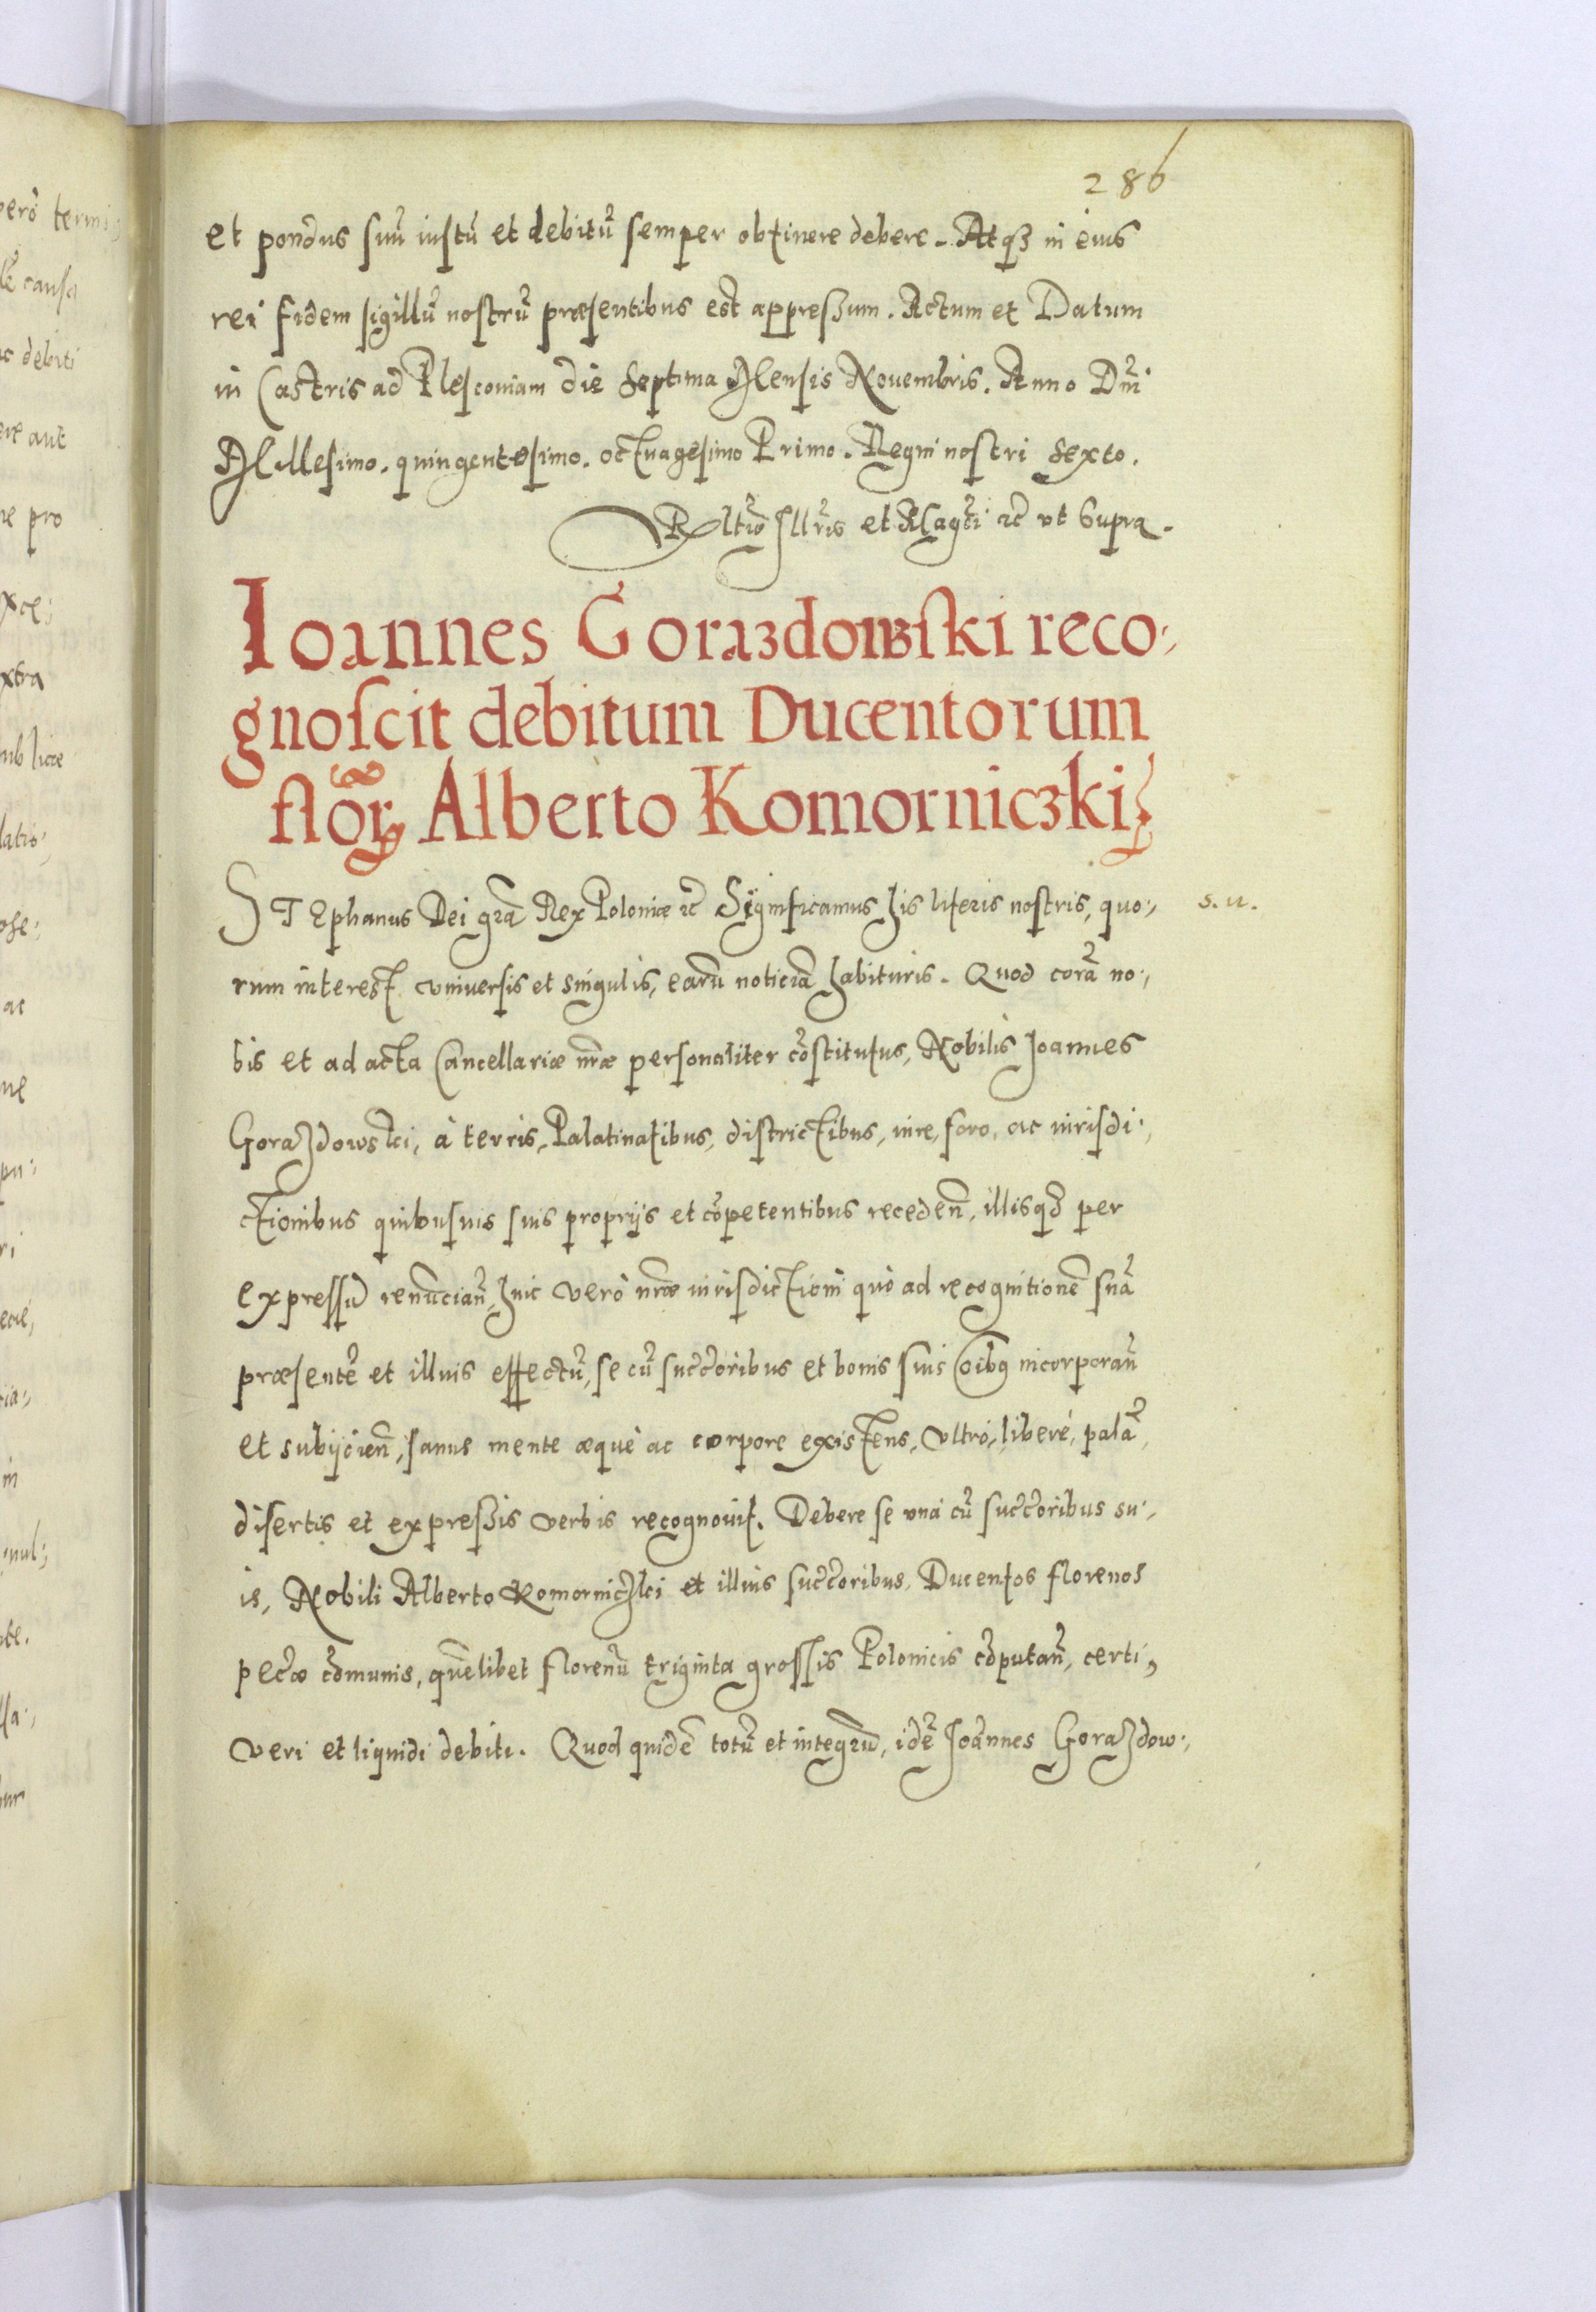 286
et pondus suũ iustũ et debitũ semper obtinere debere. Atqꝫ in eius
rei fidem sigillũ nostrũ præsentibus est appressum. Actum et Datum
in Castris ad Plesconiam die Septima Mensis Nouembris. Anno Dñi
Millesimo. quingentesimo. octuagesimo Primo. Regni nostri Sexto.
Rltio Illris et Magci ꝛc ut supra.
Ioannes Gorazdowſki reco,
gnoſcit debitum Ducentorum
flor̃ꝝ Alberto Komorniczki
STEphanus Dei grã Rex Poloniæ ꝛc Significamus his literis nostris, quo,
s. u.
rum interest vniuersis et singulis, earũ noticiã habituris. Quod corã no,
bis et ad acta Cancellariæ nræ personaliter cõstitutus, Nobilis Joannes
Gorazdowski, à terris, Palatinatibus, districtibus, iure, foro, ac iurisdi,
ctionibus quibusuis suis proprijs et cõpetentibus receden̄, illisqꝫ per
expressũ renuncian̄, huic verò nræ iurisdictioni quò ad recognitionẽ suã
præsentẽ et illius effectũ, se cũ succ̄oribus et bonis suis oĩbꝯ incorporan̄
et subijcien̄, sanus mente æquè ac corpore existens, vltrò, liberè, palã,
disertis et expressis verbis recognouit. Debere se vnà cũ succ̄oribus su,
is, Nobili Alberto Komorniczki et illius succ̄oribus, Ducentos florenos
pec̄æ cõmunis, quẽlibet florenũ triginta grossis Polonicis cõputan̄, certi,
veri et liquidi debiti. Quod quidẽ totũ et integrũ, idẽ Joannes Gorazdow,